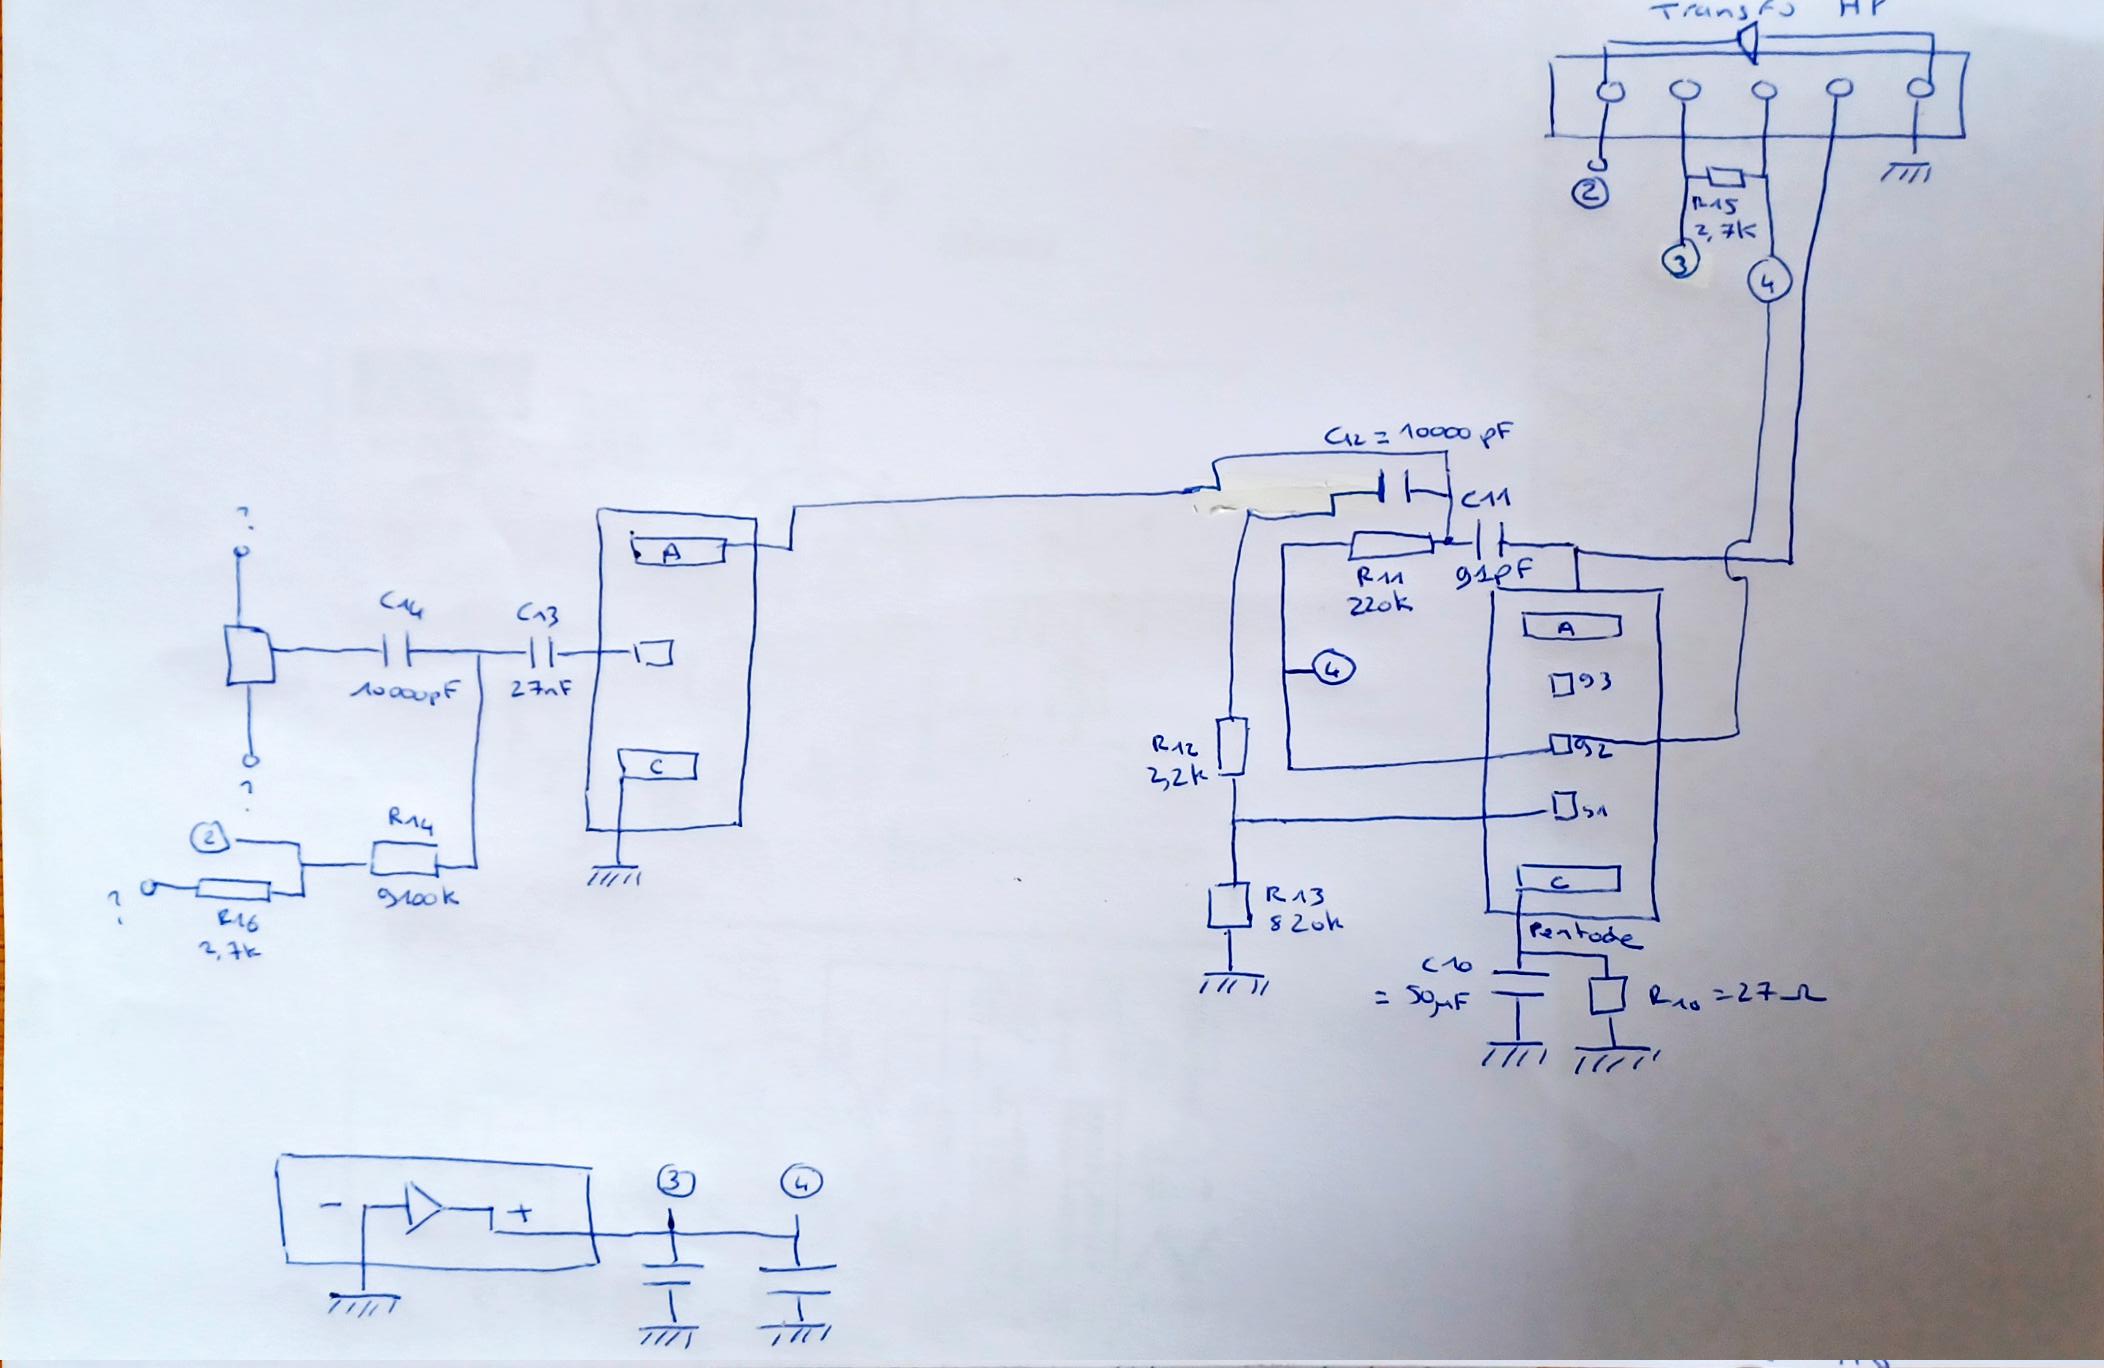 Transfo HP
2
R15
2,7K
3
4
C12 = 10000 pF
C11
91pF
R11
220k
4
A
g3
g2
g1
C
Pentode
C10
= 50µF
R10 = 27Ω
R12
2,2k
R13
820k
?
C14
10000pF
C13
27nF
A
C
?
2
R14
9100k
?
R16
2,7k
- +
3
4